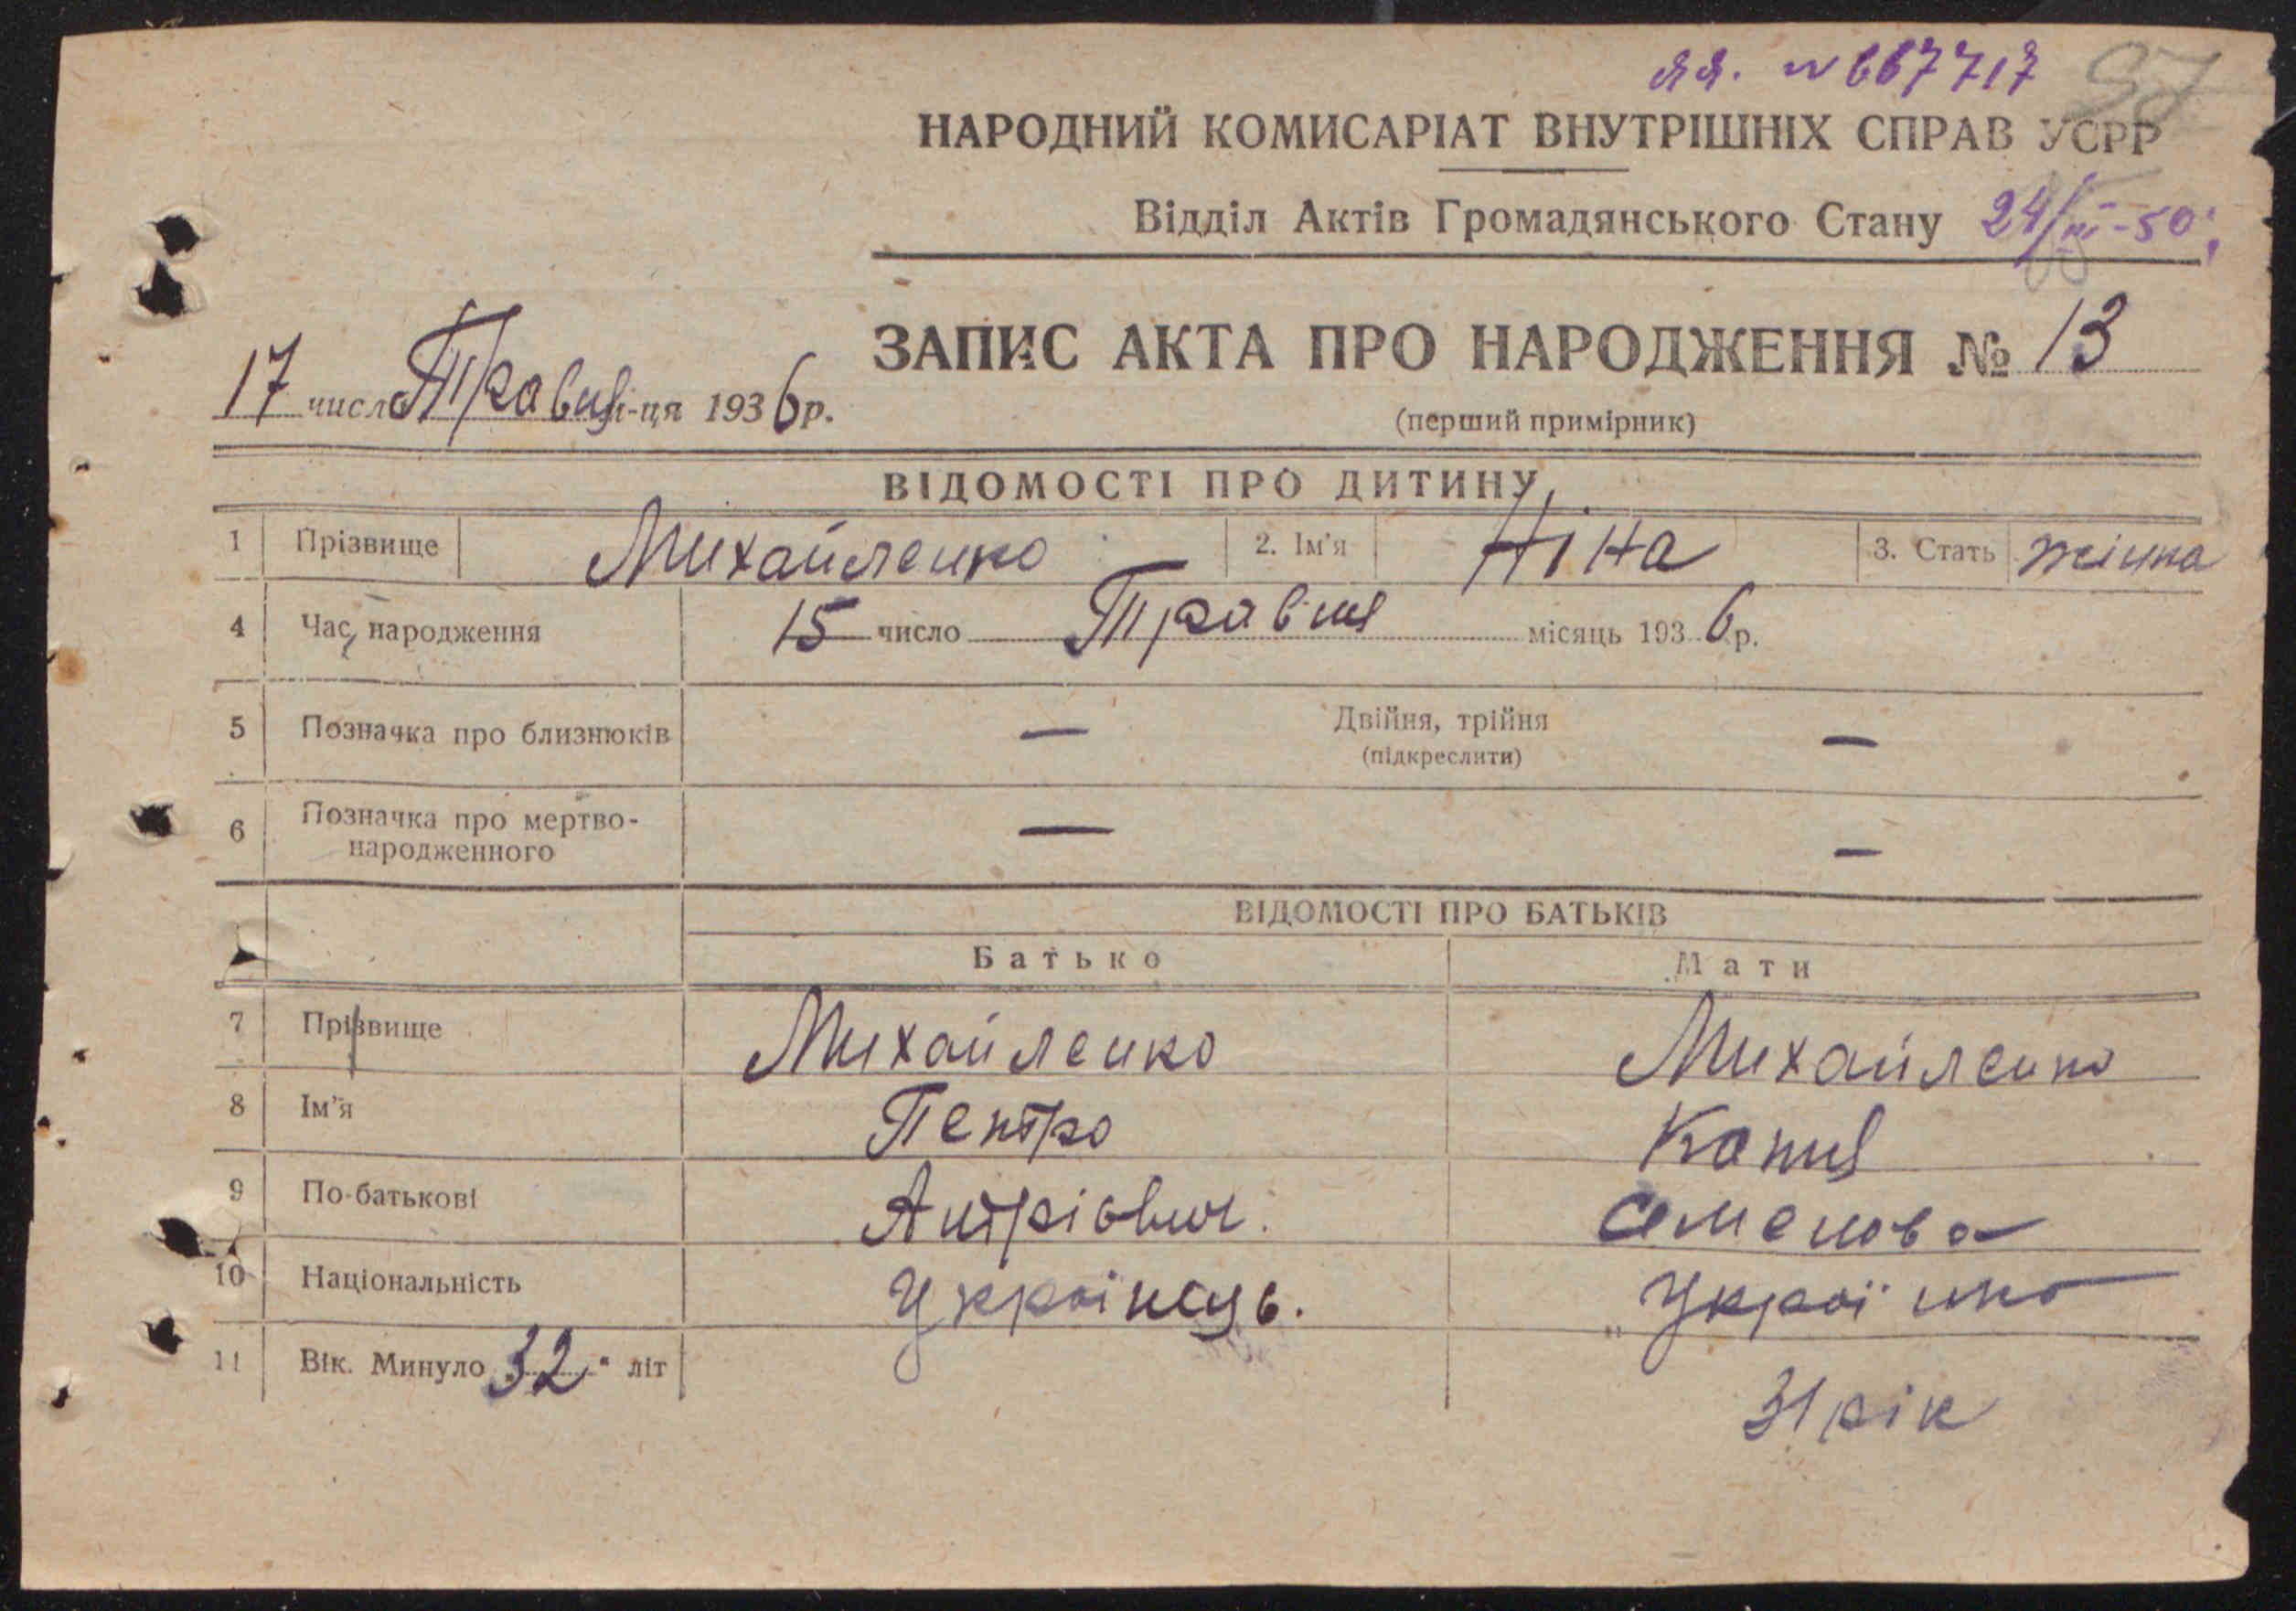 ЯЯ. № 667717 97
НАРОДНИЙ КОМИСАРІАТ ВНУТРІШНІХ СПРАВ УСРР
Відділ Актів Громадянського Стану 24/III-50
ЗАПИС АКТА ПРО НАРОДЖЕННЯ № 13
17 число Травня м-ця 1936 р.
(перший примірник)
ВІДОМОСТІ ПРО ДИТИНУ
1 Прізвище Михайленко 2. Ім'я Ніна 3. Стать жінка
4 Час народження 15 число Травня місяць 1936 р.
5 Позначка про близнюків — Двійня, трійня —
(підкреслити)
6 Позначка про мертво-
народженного — —
ВІДОМОСТІ ПРО БАТЬКІВ
Батько Мати
7 Прізвище Михайленко Михайленко
8 Ім'я Пентро Катя
9 По-батькові Антріович. Семенова
10 Національність Українець. Українка
11 Вік. Минуло „32" літ 31 рік